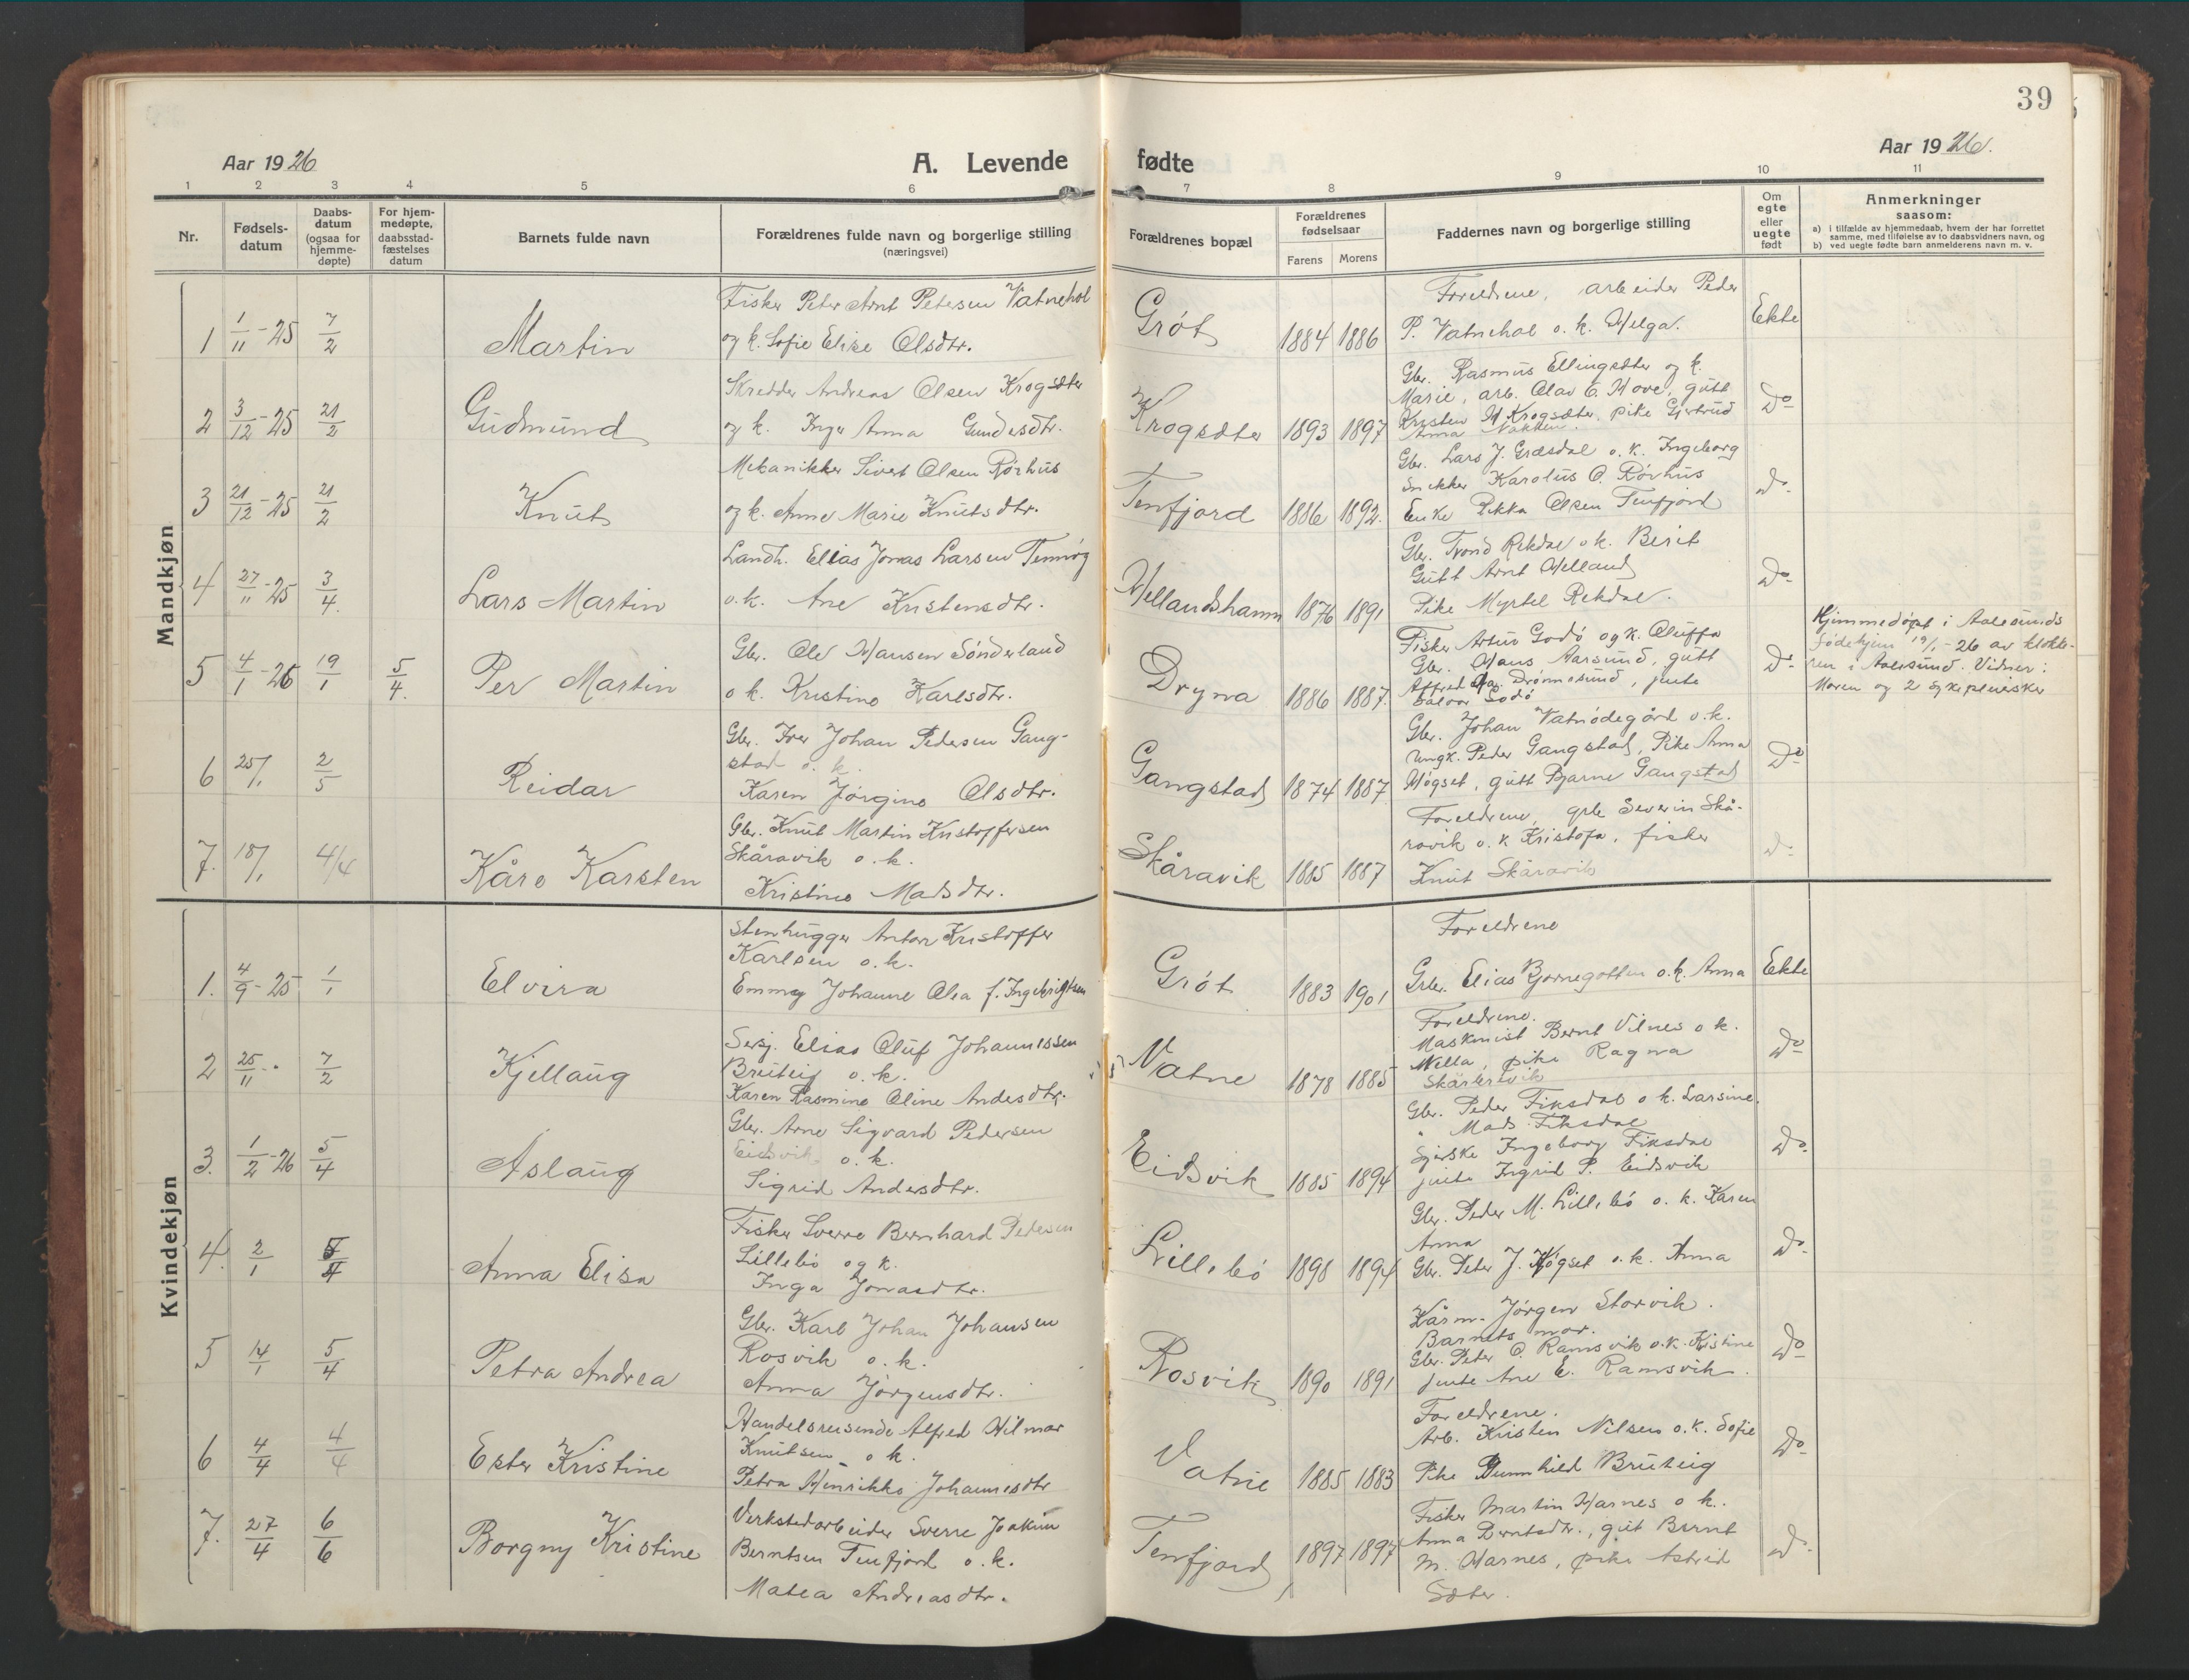 39
Aar 1926
A. Levende fødte
Aar 1926.
1 2 3 4 5 6 7 8 9 10 11
Nr.
Fødsels-
datum
Daabs-
datum
(ogsaa for
hjemme-
døpte)
For hjem-
medøpte,
daabsstad-
fæstelses
datum
Barnets fulde navn
Forældrenes fulde navn og borgerlige stilling
(næringsvei)
Forældrenes bopæl
Forældrenes
fødselsaar
Farens Morens
Faddernes navn og borgerlige stilling
Om
egte
eller
uegte
født
Anmerkninger
saasom:
a) i tilfælde av hjemmedaab, hvem der har forrettet
samme, med tilføielse av to daabsvidners navn, og
b) ved uegte fødte barn anmelderens navn m. v.
Mandkjøn
1 1/11-25 7/2 Martin
Fisker Peter Arnt Petersen Vatnehol
og k. Sofie Elise Olsdtr.
Grøt 1884 1886
Foreldrene, arbeider Peder
P. Vatnehol o. k. Helga.
Ekte
2 3/12-25 21/2 Gudmund
Skredder Andreas Olsen Krogsæter
og k. Inger Anna Gundesdtr.
Krogsæter 1893 1897
Gbr. Rasmus Ellingsæter og k.
Marie, arb. Olav E. Hove, gutt
Kristen M Krogsæter, pike Gjertrud
Anna
Do
3 21/12-25 21/2 Knut
Mekanikker Sivert Olsen Rørhus
og k. Anne Marie Knutsdtr.
Tenfjord 1886 1892.
Gbr. Lars J. Græsdal o. k. Ingeborg
Snekker Karolus O. Rørhus
Enke Rikka Olsen Tenfjord
Do
4 27/11-25 3/4. Lars Martin
Landh. Elias Jonas Larsen Tennøy
o. k. Ane Kristensdtr.
Hellandshamn 1876 1891
Gbr. Trond Rekdal o k. Berit
Gutt Arnt Helland
Pike Myrtel Rekdal.
Do
5 4/1-26 19/1 5/4. Per Martin
Gbr. Ole Hansen Sønderland
o k. Kristine Karlsdtr.
Dryna 1886 1887.
Fisker Artur Godø og k. Oluffa
Gbr. Hans Aarsund, gutt
Alfred Drønnesund, jente
Godø
Do
Hjemmedøpt i Aalesunds
fødehjem 19/1-26 av klokke-
ren i Aalesund. Vidner:
Moren og 2 sykepleiersker
6 25/1 2/5 Reidar
Gbr. Iver Johan Pedersen Gang-
stad o. k.
Karen Jørgine Olsdtr.
Gangstad 1874 1887
Gbr. Johan Vatnødegård o. k.
Ungk. Peder Gangstad, Pike Anna
Høgset, gutt Bjarne Gangstad
Do
7. 18/1 4/4 Kåre Karsten
Gbr. Knut Martin Kristoffersen
Skåravik o. k.
Kristine Madsdtr.
Skåravik 1885 1887
Foreldrene, grb Severin Skå-
ravik o. k Kristofa, fisker
Knut Skåravik
do
Kvindekjøn
1. 4/9-25 1/1 Elvira
Stenhugger Anton Kristoffer
Karlsen o. k.
Emmy Johanne Olea f. Ingebrigtsen
Grøt 1883 1901
Foreldrene
Grbr. Elias Bjørnegotten o. k. Anna
Ekte
2 25/11-. 7/2 Kjellaug
Sersj. Elias Oluf Johannessen
Bruteig o. k.
Karen Rasmine Oline Andersdtr.
Vatne 1878 1885
Foreldrene.
Maskinist Bernt Vilnes o k.
Nella, pike Ragna
Do
3. 1/2-26 5/4 Aslaug
Gbr. Arne Sigvard Pedersen
Eidsvik o. k.
Sigrid Andersdtr.
Eidsvik 1885 1894
Gbr. Peder Fiksdal o k. Larsine.
" Mads Fiksdal
Gjerske Ingeborg Fiksdal
jente Ingrid P. Eidsvik
Do
4. 2/1 5/4 Anna Elisa
Fisker Sverre Bernhard Pedersen
Lillebø og k.
Inga Jonasdtr.
Lillebø 1898 1894
Gbr. Peder M. Lillebø o. k. Karen
Anna
Gbr. Peter J. Høgset o. k. Anna
Do
5 14/1 5/4 Petra Andrea
Gbr. Karl Johan Johansen
Rosvik o. k.
Anna Jørgensdtr.
Rosvik 1890 1891
Kårm. Jørgen Storvik.
Barnets mor.
Gbr. Peter O. Ramsvik o. k. Kristine
jente Ane E. Ramsvik.
Do
6 4/4 4/4 Ester Kristine
Handelsreisende Alfred Hilmar
Knutsen o k.
Petra Henrikke Johannesdtr
Vatne 1885 1883
Foreldrene.
Arb. Kristen Nilsen o. k. Sofie
Pike Gunnhild Bruteig
Do
7. 27/4 6/6 Borgny Kristine
Verkstedarbeider Sverre Joakim
Berntsen Tenfjord o. k.
Matea Andreasdtr.
Tenfjord 1897 1897
Fisker Martin Harnes o k.
Anna Berntsdtr., gut Bernt
M. Harnes, pike Astrid
Sæter.
do